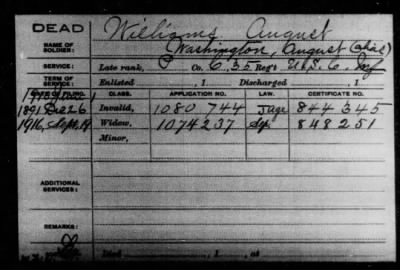 DEAD
Williams, August
NAME OF SOLDIER:
Washington, August (alias)
SERVICE:
Late rank, P Co. C, 35 Reg't U.S.C. Inf
TERM OF SERVICE:
Enlisted , 1 Discharged , 1
DATE OF FILING. CLASS. APPLICATION NO. LAW. CERTIFICATE NO.
1891 Dec 26 Invalid, 1080 744 844 345
1916, Sept. 19 Widow, 1074237 848 251
Minor,
ADDITIONAL SERVICES:
REMARKS:
Died , 1 , at